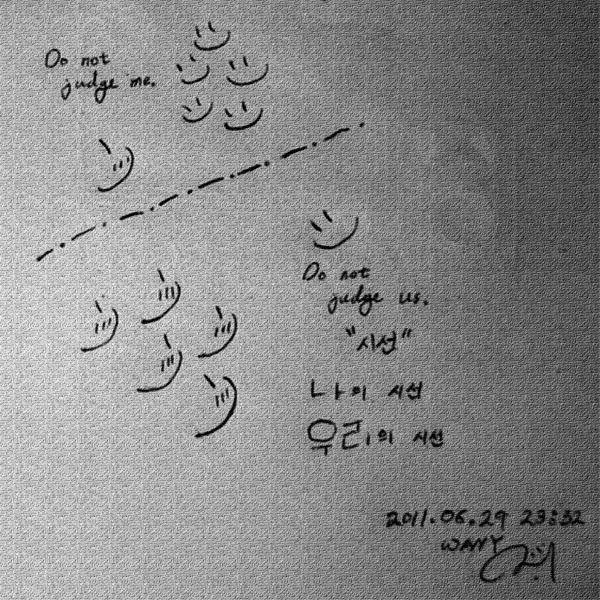 Do not
judge me.
Do not
judge us.
"시선"
나의 시선
우리의 시선
2011.06.29 23:32
WANY